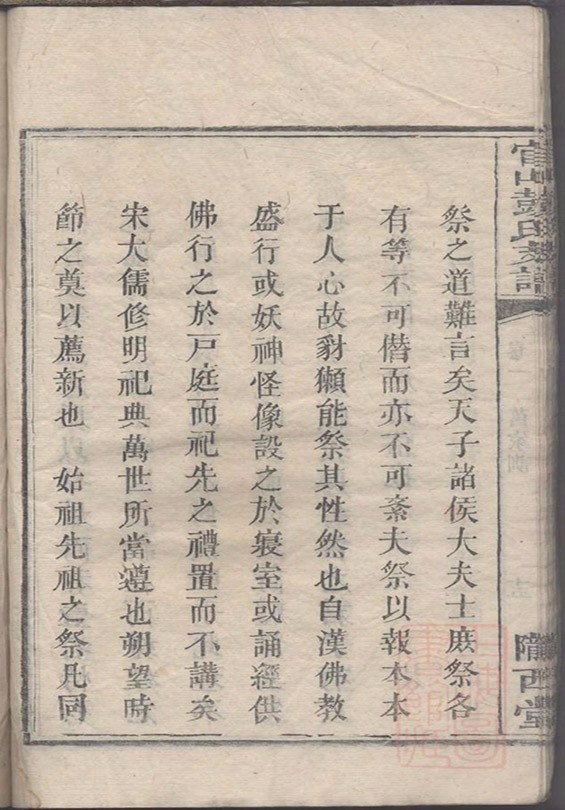 官山彭氏支譜
隴西堂
祭之道難言矣天子諸侯大夫士庶祭各
有等不可僭而亦不可紊夫祭以報本本
于人心故豺獺能祭其性然也自漢佛教
盛行或妖神怪像設之於寢室或誦經供
佛行之於戸庭而祀先之禮置而不講矣
宋大儒修明祀典萬世所當遵也朔望時
節之奠以薦新也 始祖先祖之祭凡同